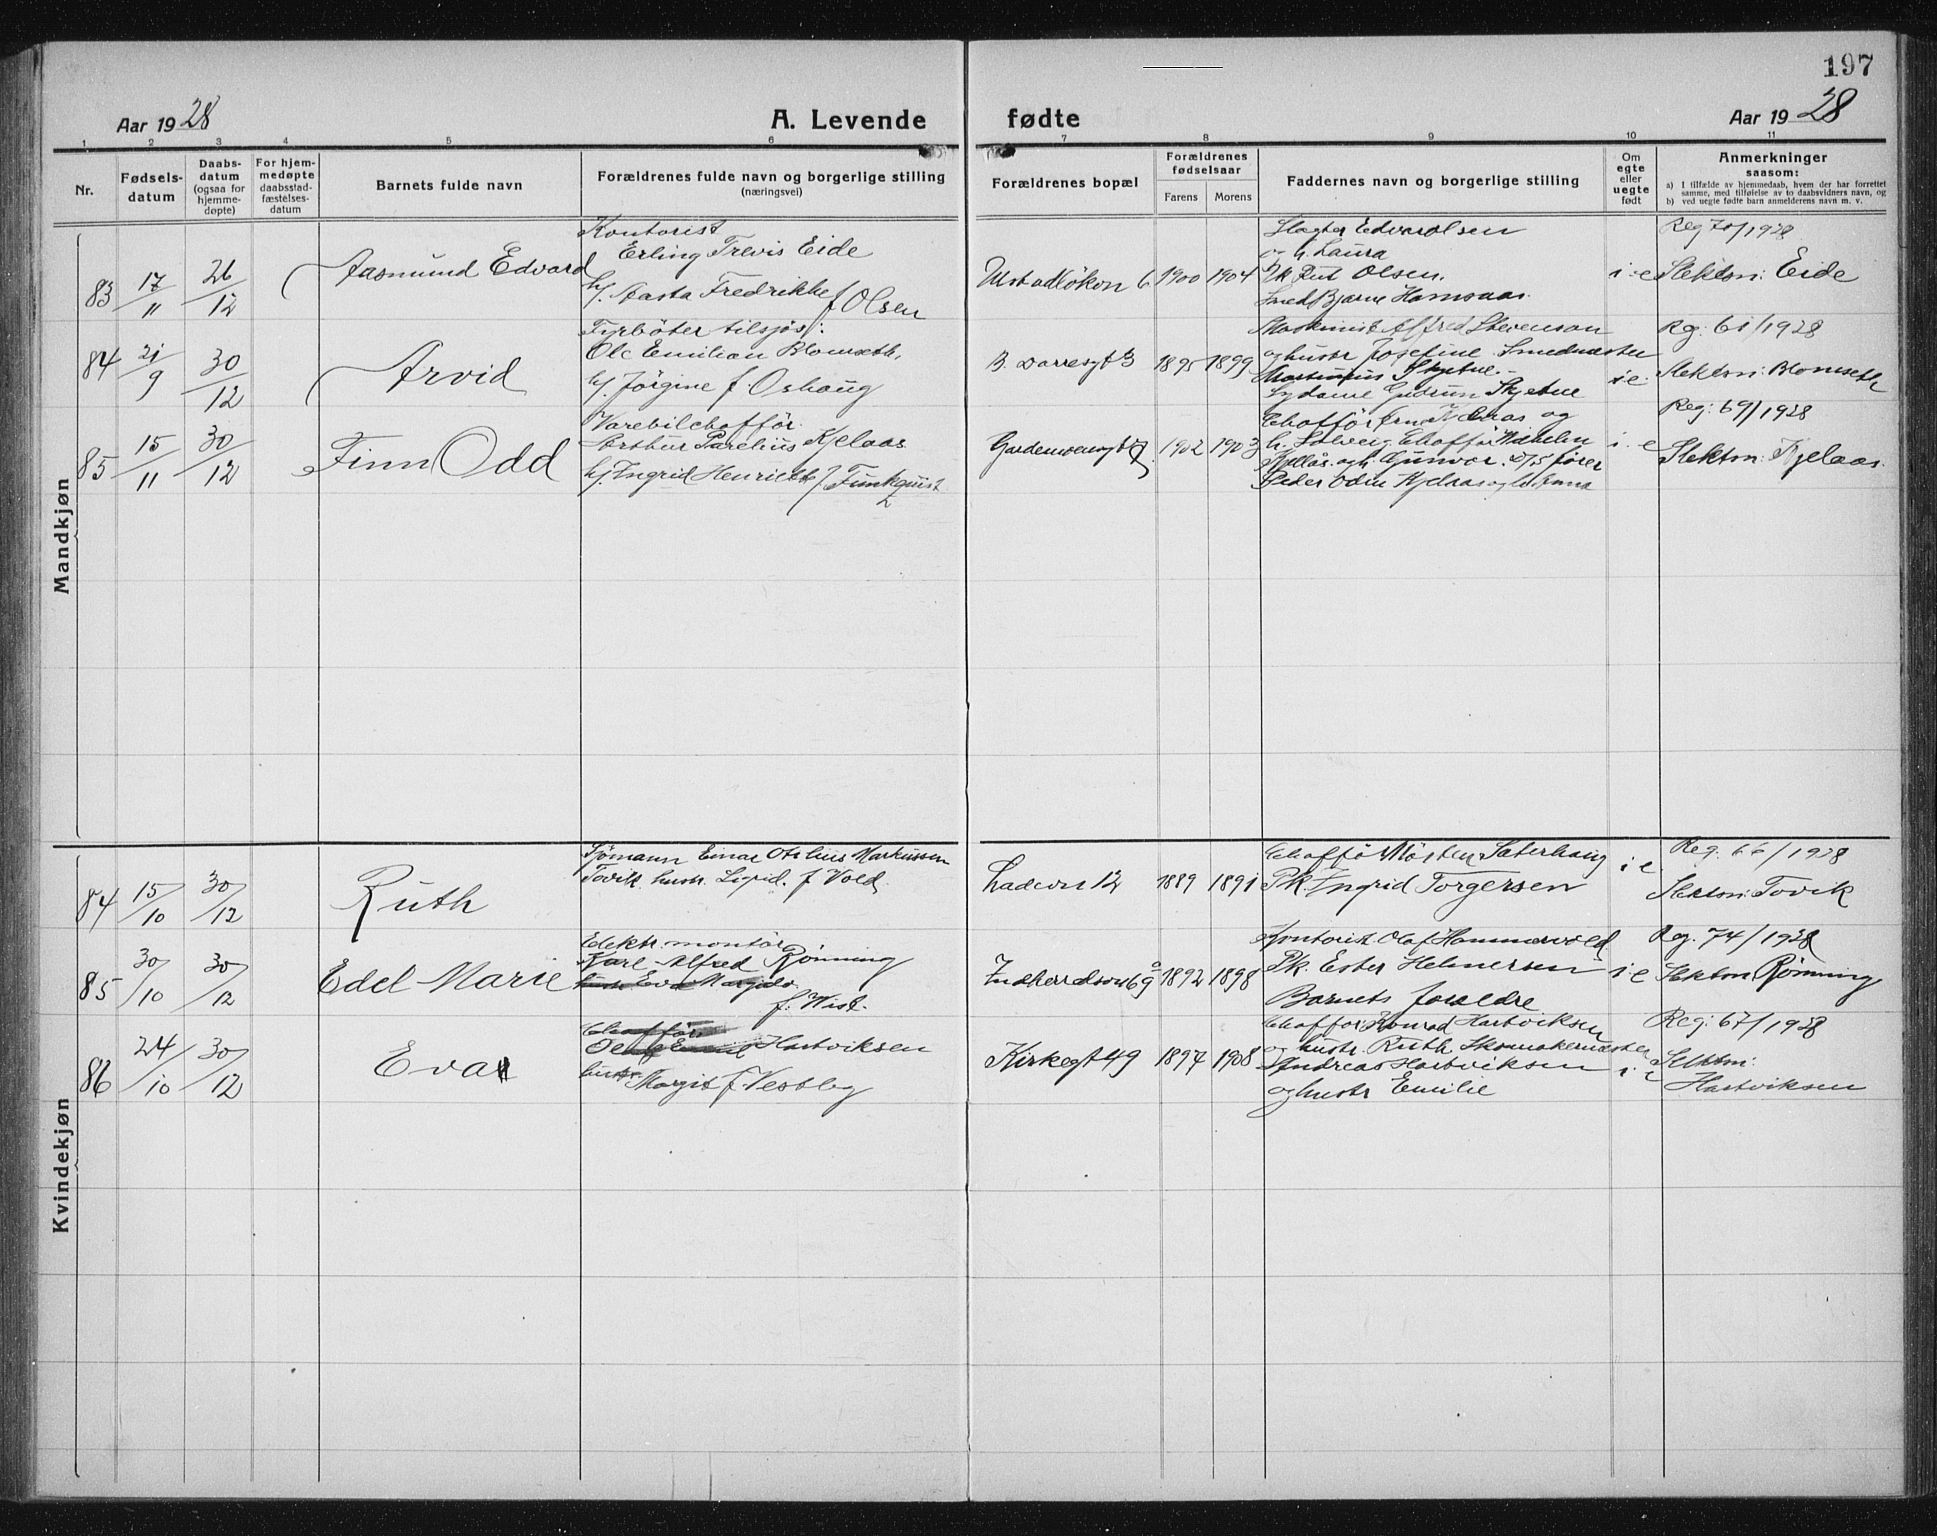 197
Aar 1928
A. Levende
fødte
Aar 1928
1 2 3 4 5 6 7 8 9 10 11
Nr.
Fødsels-
datum
Daabs-
datum
(ogsaa for
hjemme-
døpte)
For hjem-
medøpte
daabsstad-
fæstelses-
datum
Barnets fulde navn
Forældrenes fulde navn og borgerlige stilling
(næringsvei)
Forældrenes bopæl
Forældrenes
fødselsaar
Farens
Morens
Faddernes navn og borgerlige stilling
Om
egte
eller
uegte
født
Anmerkninger
saasom:
a) I tilfælde av hjemmedaab, hvem der har forrettet
samme, med tilføielse av to daabsvidners navn, og
b) ved uegte fødte barn anmelderens navn m. v.
Mandkjøn
83
17/11
26/12
Aasmund Edvard
Kontorist
Erling Trevis Eide
h/. Aasta Fredrikke f Olsen
6 1900 1904
Slagter Edv Olsen
og h. Laura
Pk. Rut Olsen.
Smed Bjarne Hamsaas.
i-e
Reg 70/1928
Slektsn: Eide
84
21/9
30/12
Arvid
Fyrbøter tilsjøs:
Ole Emilian Blomseth,
h/. Jørgine f. Oshaug
B. Darresgt 3
1895 1899
Maskinist Alfred Stevenson
og hustr Josefine Smedmester
Martinius Skjetne.
Gudrun Skjetne
i e.
Rg: 61/1928
Slektsn: Blomseth
85
15/11
30/12
Finn Odd
Varebilchaffør.
Arthur Parelius Kjelaas
h/. Ingrid Henriette f. Funkquist
Gardemoensgt 7.
1902 1903
Chaffør og
h. Solveig. Chaffør Wilhelm
og h. Gunvor. D/S fører
Peder Odin Kjelaas og h. Anna
i. e
Reg: 69/1928
Slektsn: Kjelaas.
Kvindekjøn
84
15/10
30/12
Ruth
Sjømann Einar Otelius Markussen
Tovik hustr. Sigrid. f Vold.
Ladevn 12
1889 1891
Chaffør Saterhaug
Pk. Ingrid Torgersen
i e
Reg. 66/1928
Slektsn: Tovik
85
30/10
30/12
Edel Marie
Elektr. montør
Karl Alfred Rønning
hustr Eva
f. Wist.
Indherredsvei 69a
1892 1898
Kontorist. Olaf Hammervold
Pk. Ester Helmersen
Barnets foreldre
i e
Rg. 74/1928
Slektsn Rønning
86
24/10
30/12
Eva
Chaffør
Hartviksen
hustr. Margit f. Vestby
Kirkegt 49
1897 1908
Chaffør Konrad Hartviksen
og hustr. Ruth Skomakermester
Andreas Hartviksen
og hustr Emilie
i e
Reg: 67/1928
Slektsn:
Hartviksen